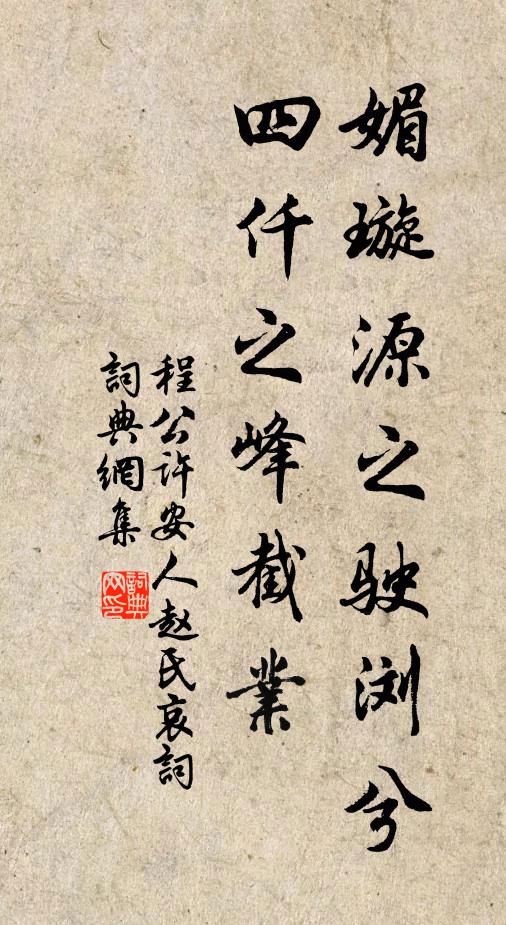 媚璇源之駛浏兮
四仟之峰截業
程公许安人赵氏哀詞
詞典網集
詞典網印